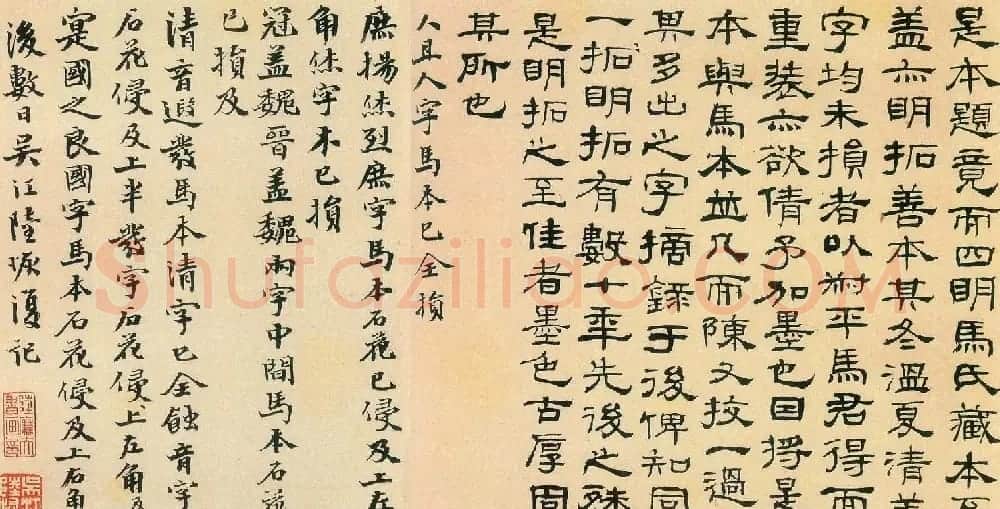 是本題竟而四明馬氏藏本
盖亦明拓善本其冬溫夏清
字均未損者以平馬君得而
重裝亦欲倩予加墨也因將是
本與馬本並几而陳又挍一過
異多出之字摘錄于後俾知同
一拓明拓有數十年先後之殊
是明拓之至佳者墨色古厚固
其所也
人且人字馬本已全損
庶揚烋烈庶字馬本石花已侵及上左
角烋字木已損
冠盖魏晉盖魏兩字中間馬本石花
已損及
清音遐發馬本清字已全蝕音字
石花侵及上半發字石花侵上左角及
寔國之良國字馬本石花侵及上右角
後數日吳江陸恢復記
Shufaziliao.COM